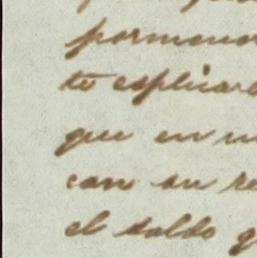 pormeno
te esplicare
que en u
can su re
el saldo q